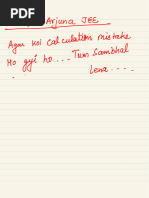 Arjuna JEE
Agar koi calculation mistake
Ho gyi ho... Tum Sambhal
Lena....